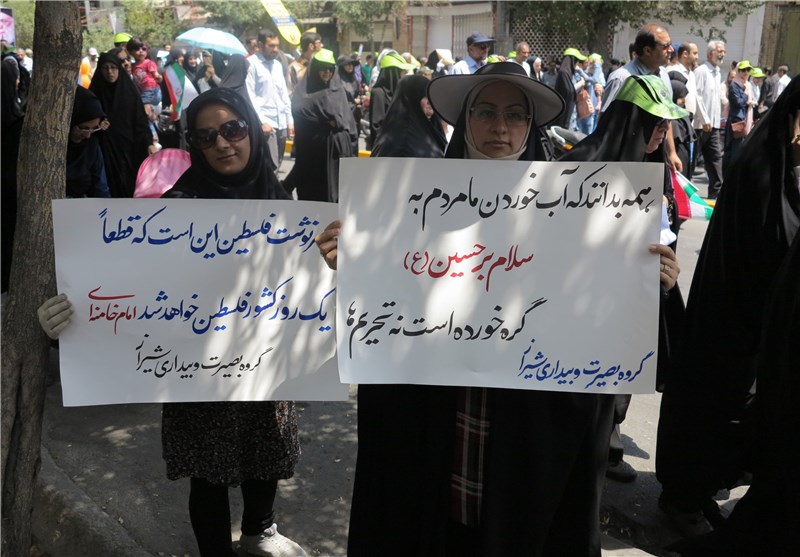 سرنوشت فلسطین این است که قطعاً
یک روز کشور فلسطین خواهد شد امام خامنه‌ای
گروه بصیرت و بیداری شیراز
همه بدانند که آب خوردن ما مردم به
سلام بر حسین (ع)
گره خورده است نه تحریم ها
گروه بصیرت و بیداری شیراز